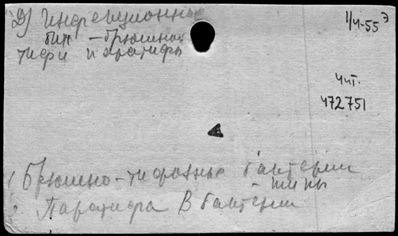 Д) Инфекционные
бил - брюшной
тифы паратифы
1/4-55 Э
Чит.
472751
1 Брюшно-тифозные бактерии
- типы
2 Паратифа В бактерии